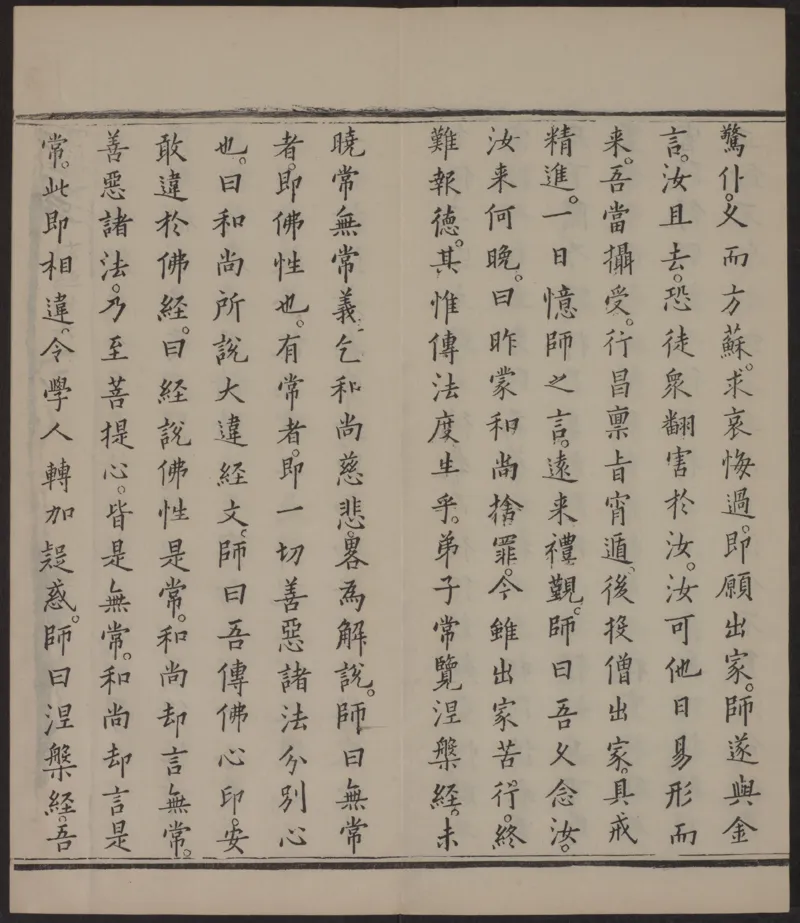 驚仆。久而方蘇。求哀悔過。即願出家。師遂與金
言。汝且去。恐徒衆翻害於汝。汝可他日易形而
来。吾當攝受。行昌禀旨宵遁。後投僧出家。具戒
精進。一日憶師之言。遠来禮覲。師曰吾久念汝。
汝来何晚。曰昨蒙和尚捨罪。今雖出家苦行。終
難報德。其惟傳法度生乎。弟子常覽涅槃經。未
曉常無常義。乞和尚慈悲。畧為解說。師曰無常
者。即佛性也。有常者。即一切善惡諸法分別心
也。曰和尚所說大違經文。師曰吾傳佛心印。安
敢違於佛經。曰經說佛性是常。和尚却言無常。
善惡諸法。乃至菩提心。皆是無常。和尚却言是
常。此即相違。令學人轉加疑惑。師曰涅槃經。吾